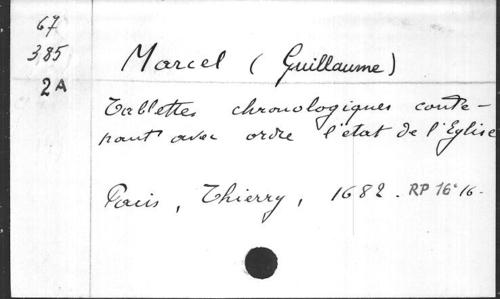 67
385
2A
Marcel (Guillaume)
Tablettes chronologiques conte-
nant avec ordre l'état de l'Eglise
Paris, Thierry, 1682. RP 16° 16.